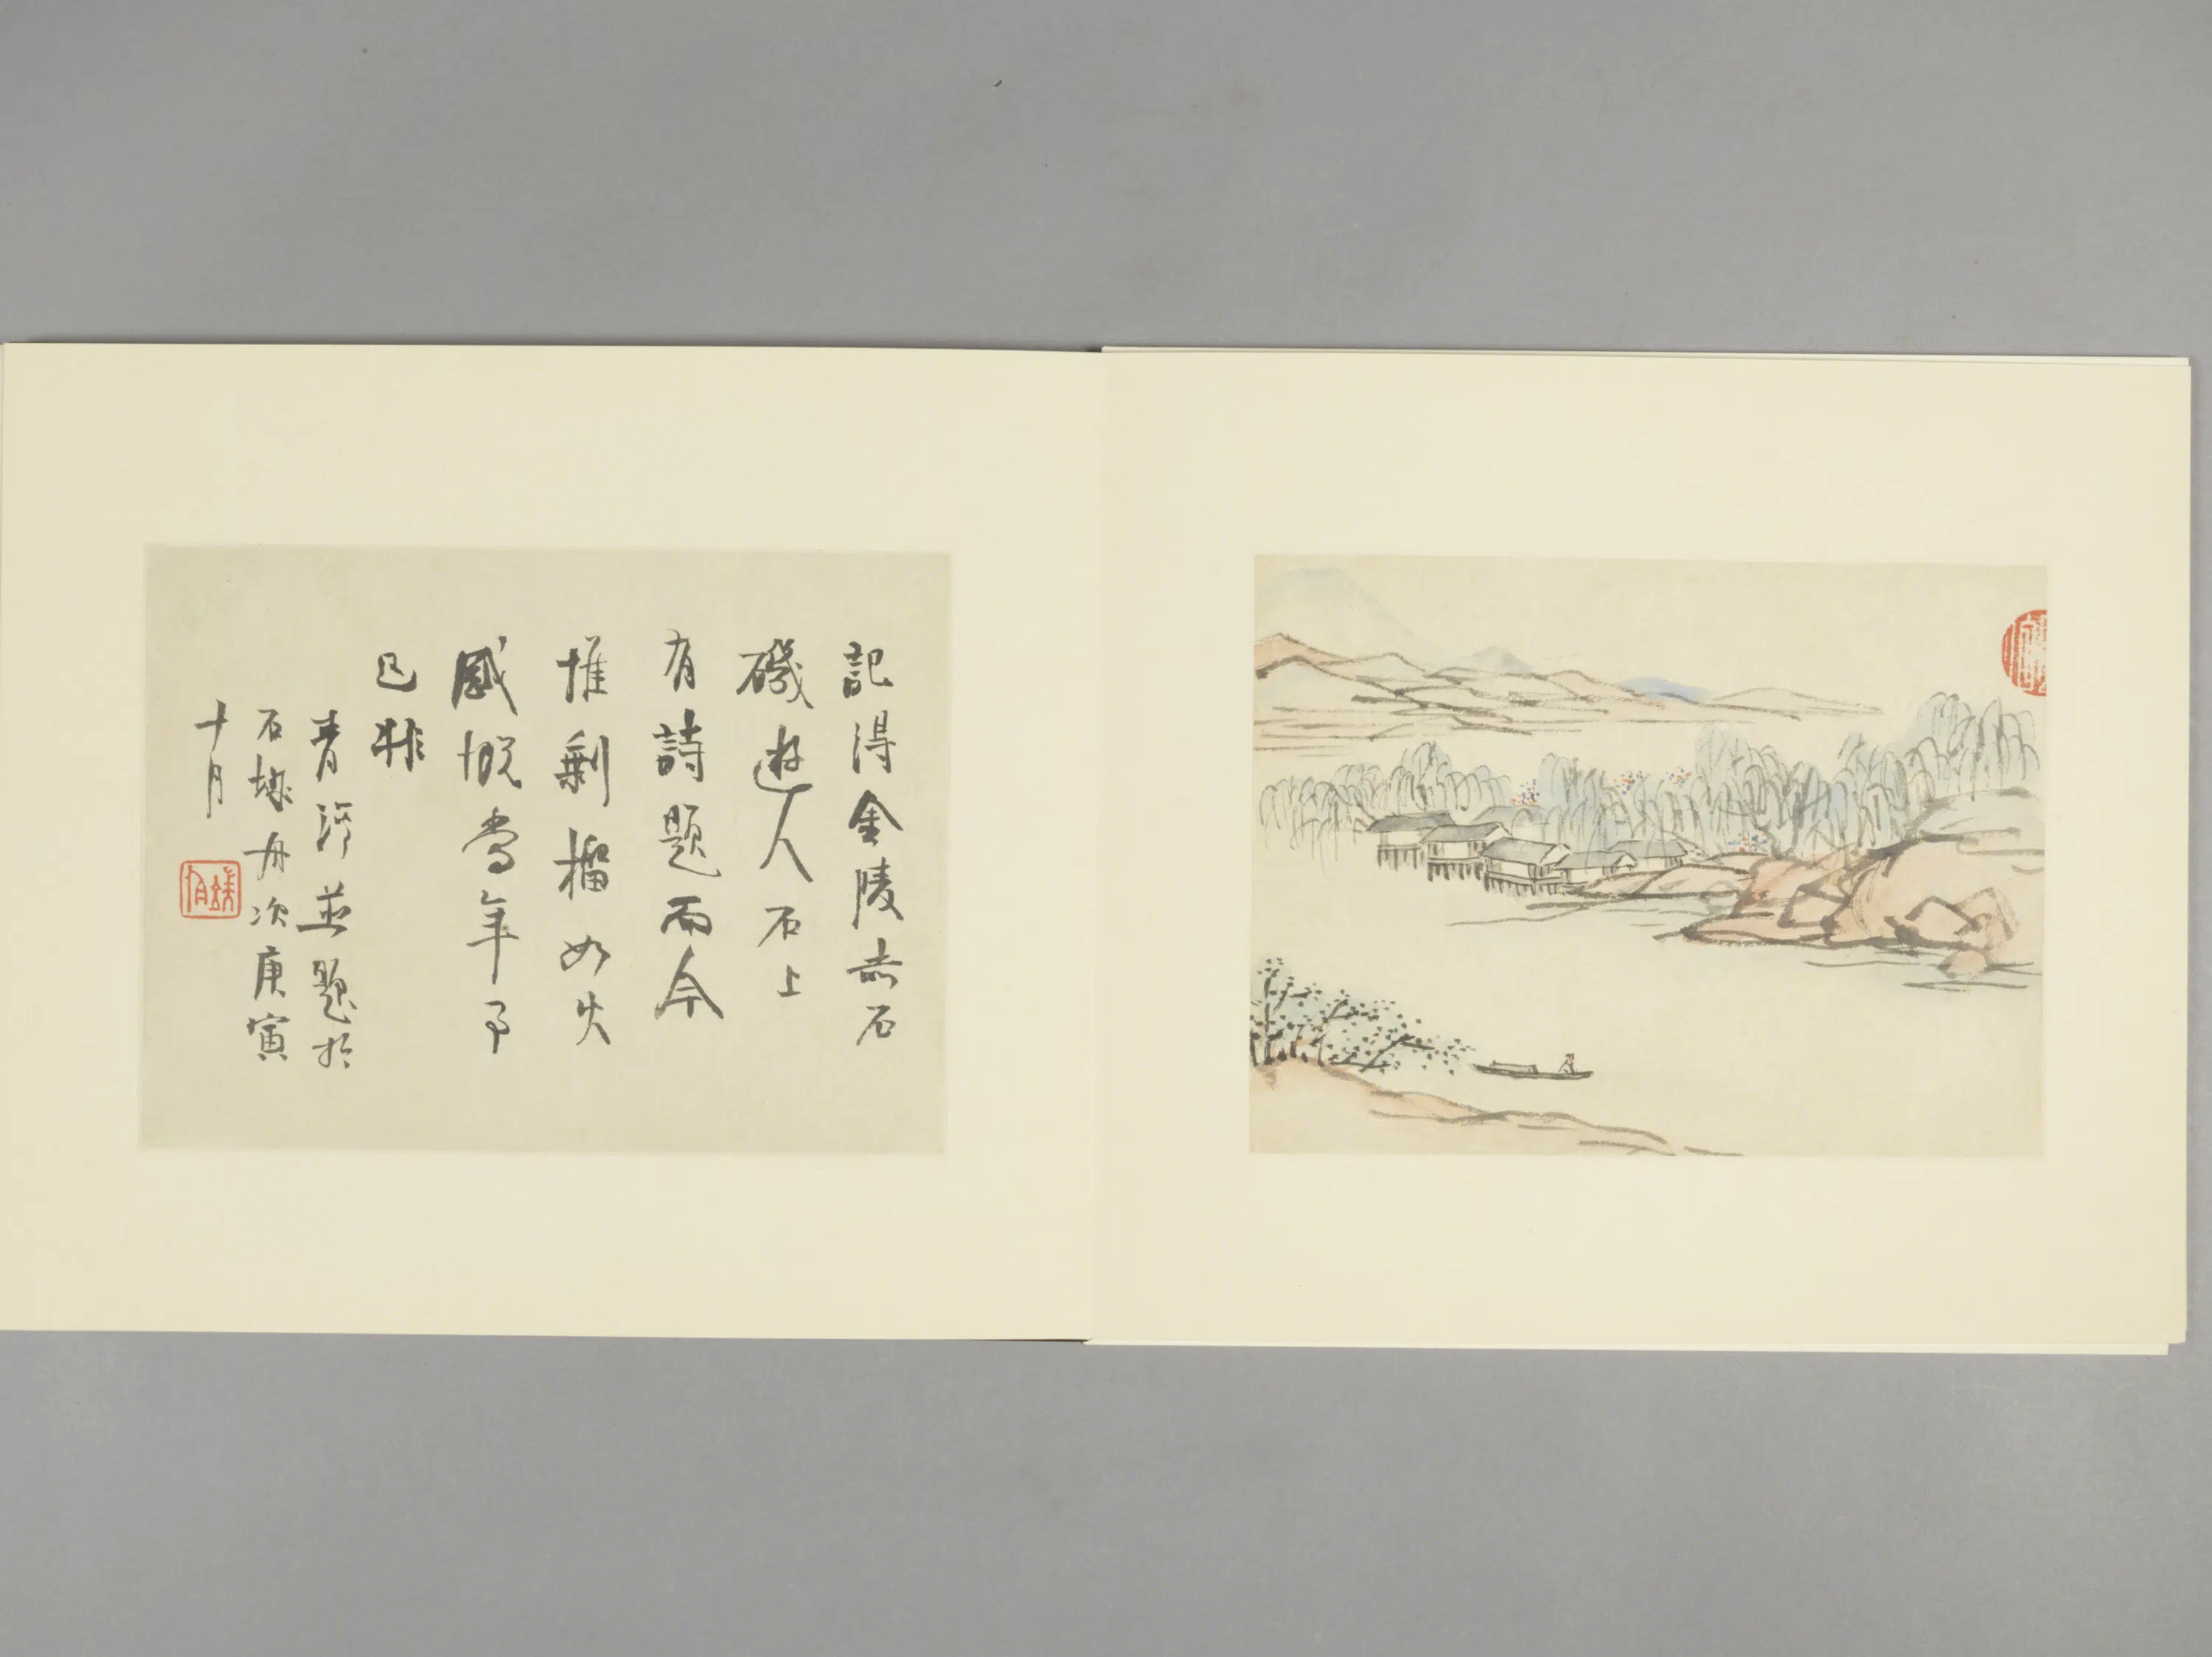 記得金陵赤石
磯遊人石上
有詩題而今
惟剩榴如火
感慨當年事
已非
青 並題於
石城舟次庚寅
十月